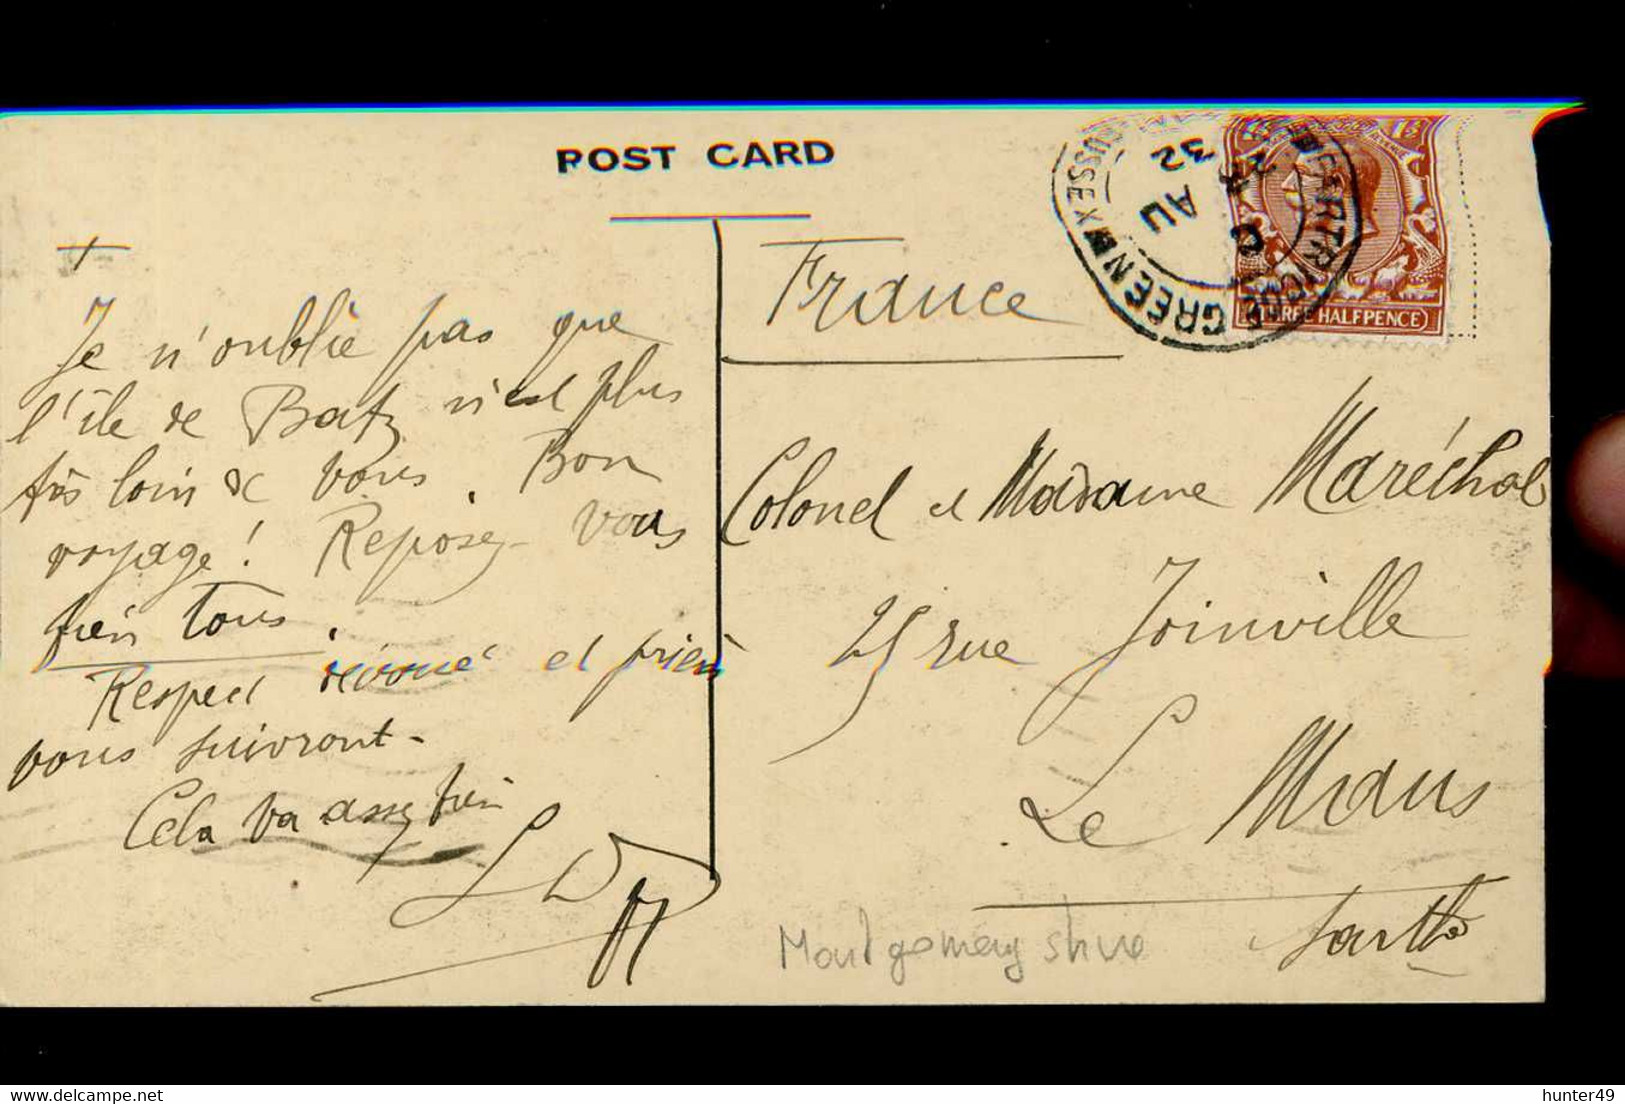 POST CARD
+
Je n'oublie pas que
l'île de Batz n'est plus
très loin de vous. Bon
voyage! Reposez-vous
bien tous.
Respect dévoué et prières
vous suivront-
Cela va assez bien
France
Colonel et Madame Maréchal
25 rue Joinville
Le Mans
Sarthe
Montgomeryshire
PARTRIDGE GREEN
SUSSEX
AU
32
THREE HALFPENCE
Delcampe.net
hunter49